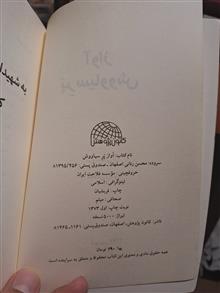 کانون پژوهش
نام کتاب: آواز پَر سیاووش
سروده: محسن رنانی اصفهان ـ صندوق پستی: ۸۱۳۹۵/۴۵۶
حروفچینی: مؤسسه فلاحت ایران
لیتوگرافی: اسلامی
چاپ: فرسایان
صحافی: میثم
نوبت چاپ: اول ۱۳۷۳
تیراژ: ۵۰۰۰ نسخه
ناشر: کانون پژوهش، اصفهان، صندوق‌پستی: ۱۱۶۱ـ۸۱۴۶۵
بها: ۲۹۰ تومان
همه حقوق مادی و معنوی این کتاب محفوظ و متعلق به سراینده است
به
شهید